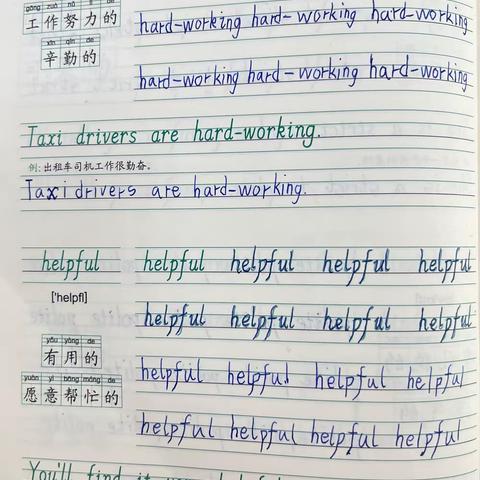 gōng zuò nǔ lì de hard-working hard-working hard-working
工作努力的
xīn qín de
辛勤的 hard-working hard-working hard-working
Taxi drivers are hard-working.
例:出租车司机工作很勤奋。
Taxi drivers are hard-working.
helpful helpful helpful helpful helpful
['helpfl] helpful helpful helpful helpful
yǒu yòng de
有用的 helpful helpful helpful helpful
yuàn yì bāng máng de
愿意帮忙的 helpful helpful helpful helpful
You'll find it